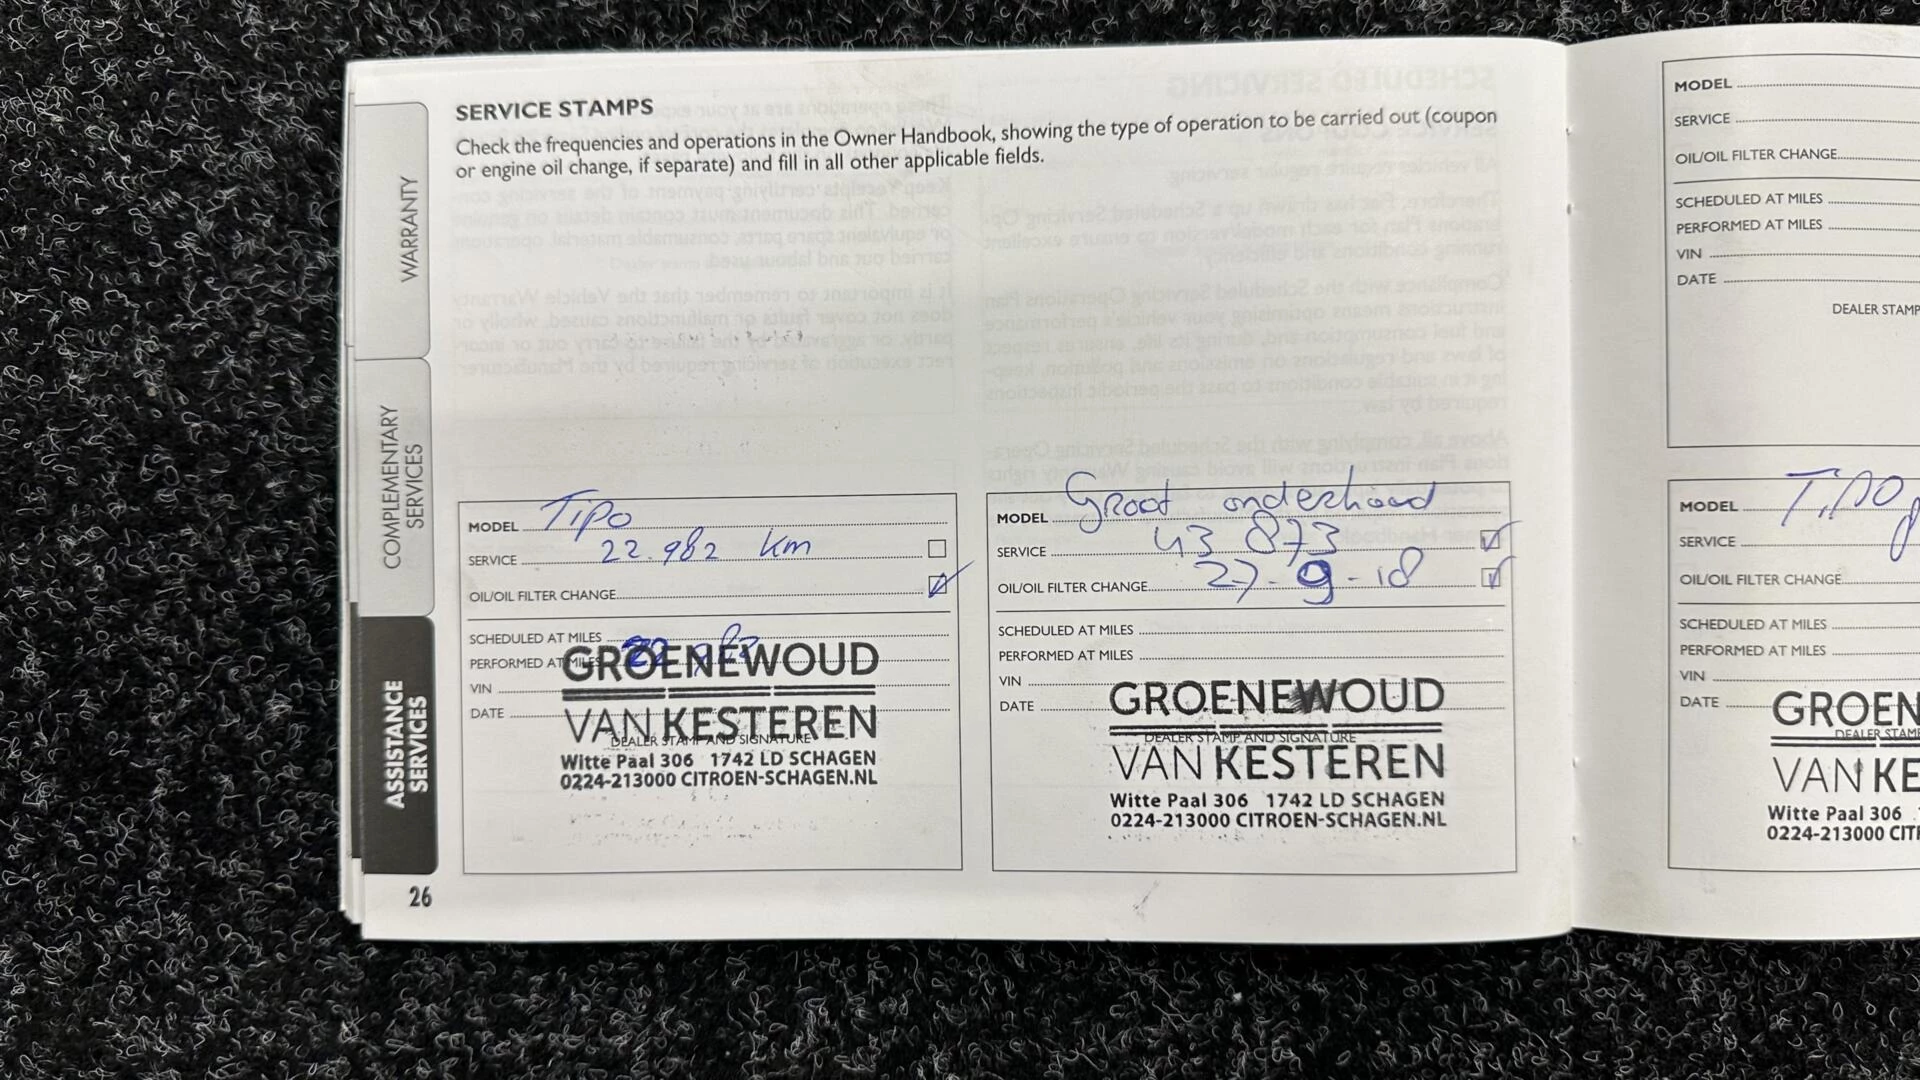 WARRANTY
COMPLEMENTARY
SERVICES
ASSISTANCE
SERVICES
26
SERVICE STAMPS
Check the frequencies and operations in the Owner Handbook, showing the type of operation to be carried out (coupon
or engine oil change, if separate) and fill in all other applicable fields.
MODEL Tipo
SERVICE 22.982 km
OIL/OIL FILTER CHANGE
SCHEDULED AT MILES
PERFORMED AT MILES
VIN
DATE
GROENEWOUD
VAN KESTEREN
DEALER STAMP AND SIGNATURE
Witte Paal 306 1742 LD SCHAGEN
0224-213000 CITROEN-SCHAGEN.NL
MODEL Groot onderhoud
SERVICE 43 873
OIL/OIL FILTER CHANGE 27-9-18
SCHEDULED AT MILES
PERFORMED AT MILES
VIN
DATE
GROENEWOUD
DEALER STAMP AND SIGNATURE
VAN KESTEREN
Witte Paal 306 1742 LD SCHAGEN
0224-213000 CITROEN-SCHAGEN.NL
MODEL
SERVICE
OIL/OIL FILTER CHANGE
SCHEDULED AT MILES
PERFORMED AT MILES
VIN
DATE
DEALER STAMP
MODEL Tipo
SERVICE
OIL/OIL FILTER CHANGE
SCHEDULED AT MILES
PERFORMED AT MILES
VIN
DATE
GROEN
DEALER STAM
VAN KE
Witte Paal 306
0224-213000 CIT